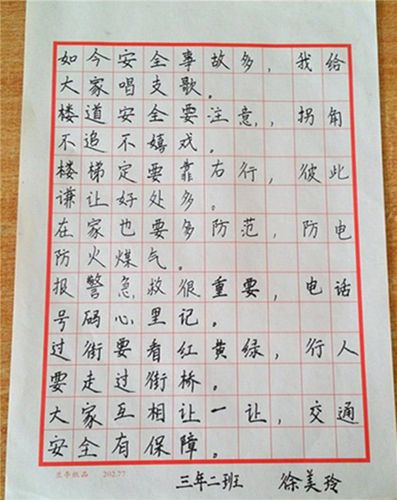 如今安全事故多，我给
大家唱支歌。
楼道安全要注意，拐角
不追不嬉戏。
楼梯定要靠右行，彼此
谦让好处多。
在家也要多防范，防电
防火煤气。
报警急救很重要，电话
号码心里记。
过街要看红黄绿，行人
要走过街桥。
大家互相让一让，交通
安全有保障。
三年二班 徐美玲